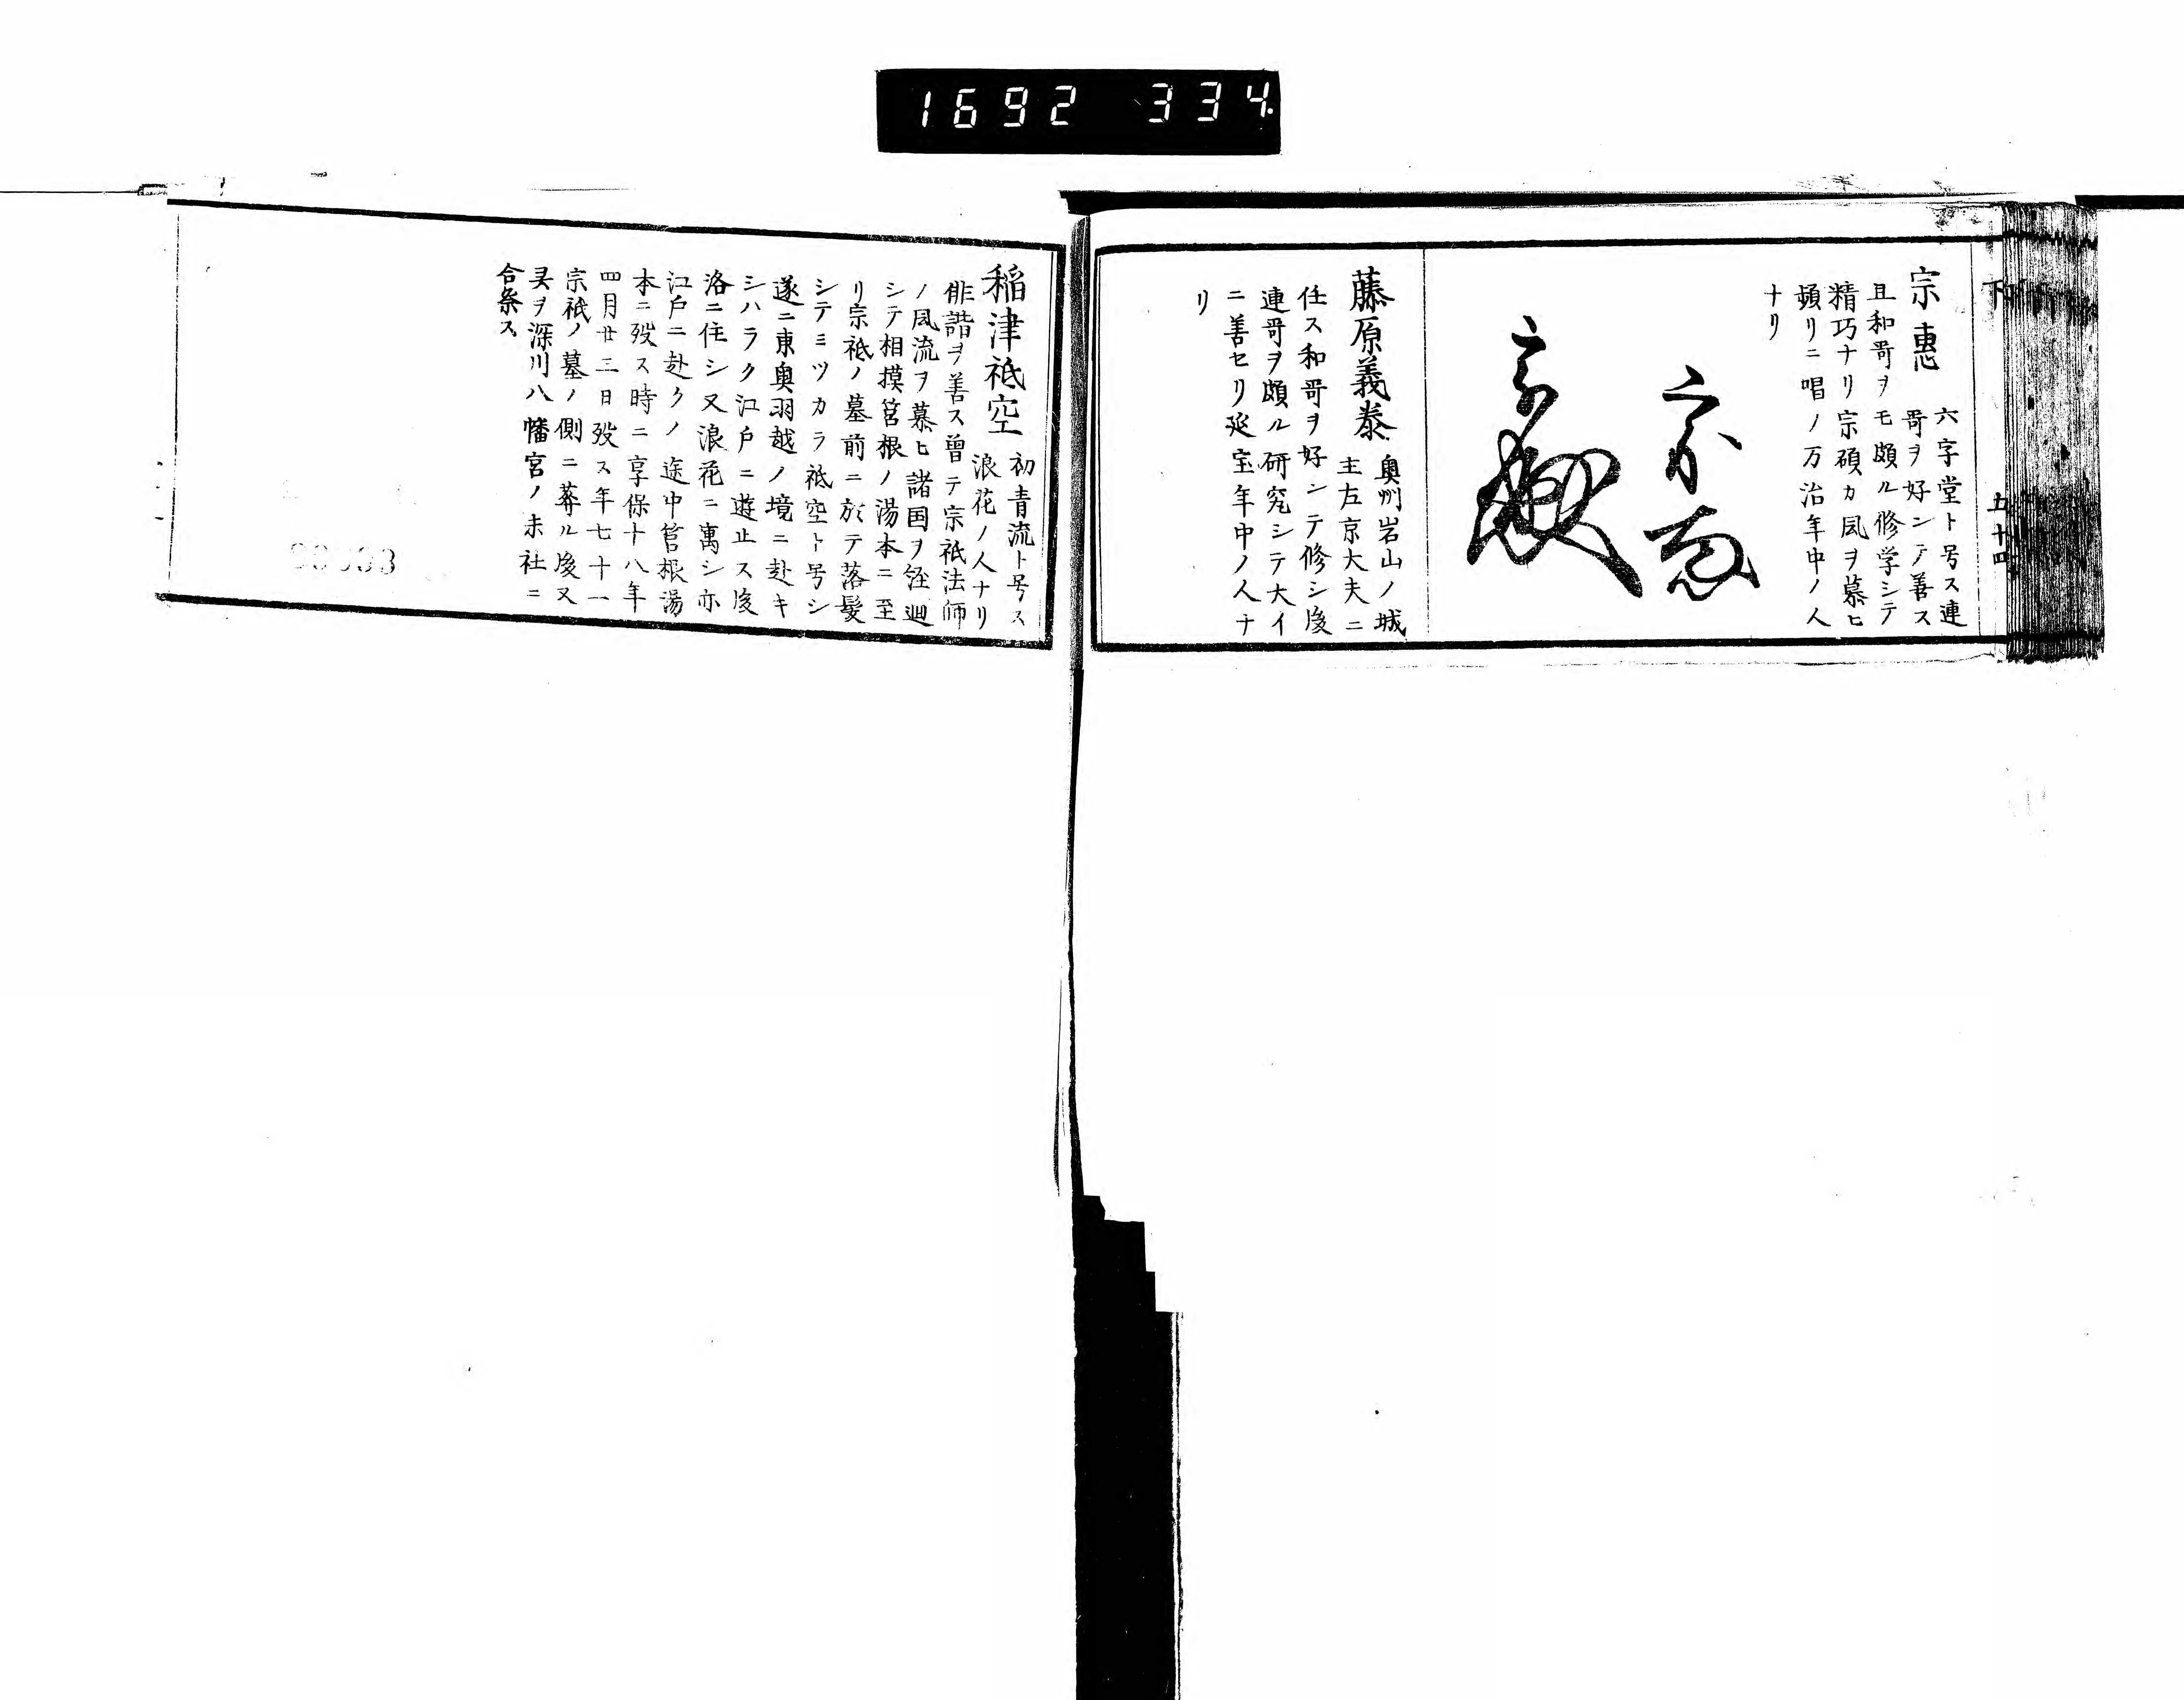 1692 334.
下
五十四
宗恵
六字堂ト号ス連
哥ヲ好ンテ善ス
且和哥ヲモ頗ル修学シテ
精巧ナリ宗碩カ風ヲ慕ヒ
頻リニ唱ノ万治年中ノ人
ナリ
藤原義泰
奥州岩山ノ城
主左京大夫ニ
任ス和哥ヲ好ンテ修シ後
連哥ヲ頗ル研究シテ大イ
ニ善セリ延宝年中ノ人ナ
リ
稲津祇空
初青流ト号ス
浪花ノ人ナリ
俳諧ヲ善ス曽テ宗祇法師
ノ風流ヲ慕ヒ諸国ヲ経廻
シテ相摸筥根ノ湯本ニ至
リ宗祇ノ墓前ニ於テ落髪
シテミツカラ祇空ト号シ
遂ニ東奥羽越ノ境ニ赴キ
シハラク江戸ニ遊止ス後
洛ニ住シ又浪花ニ寓シ亦
江戸ニ赴クノ途中管根湯
本ニ歿ス時ニ享保十八年
四月廿三日歿ス年七十一
宗祇ノ墓ノ側ニ葬ル後又
㚑ヲ深川八幡宮ノ末社ニ
合祭ス